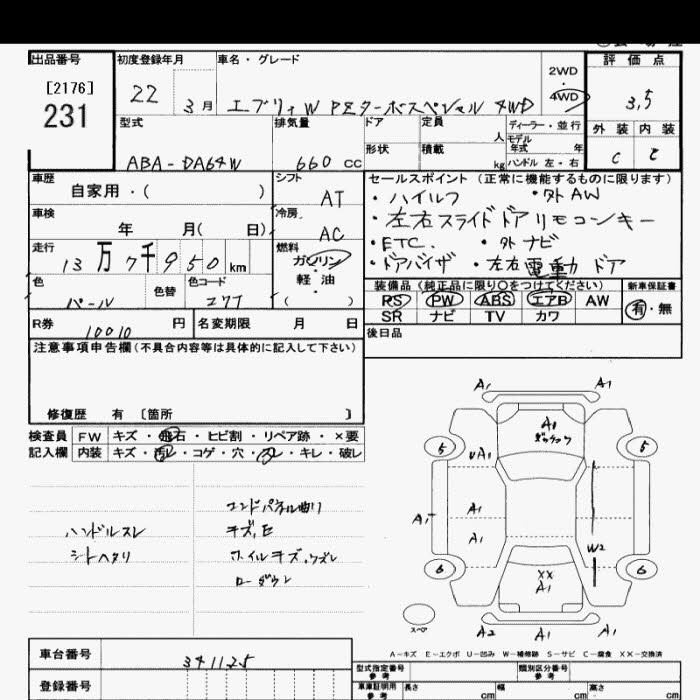 出品番号
[2176]
231
初度登録年月
22 3月
車名・グレード
エブリィW PZターボスペシャル 4WD
2WD
・
4WD
評価点
3,5
外装 内装
C C
型式
ABA-DA64W
排気量
660 CC
ドア
形状
定員 人
積載 kg
ディーラー・並行
モデル年式 年
ハンドル 左・右
車歴
自家用・( )
シフト
AT
車検
年 月( 日)
冷房
AC
走行
13万7千950km
燃料
ガソリン
・
軽・油
( )
色
パール
色替
色コード
Z77
R券
10010円
名変期限 月 日
セールスポイント (正常に機能するものに限ります)
・ハイルフ ・外AW
・左右スライドドアリモコンキー
・ETC. ・外ナビ
・ドアバイザ ・左右電動ドア
装備品 (純正品に限り○をつけてください)
PS PW ABS エアB AW
SR ナビ TV カワ
新車保証書
有・無
後日品
注意事項申告欄 (不具合内容等は具体的に記入して下さい)
修復歴 有 〔箇所 〕
検査員
記入欄
FW キズ・飛石・ヒビ割・リペア跡・×要
内装 キズ・汚レ・コゲ・穴・スレ・キレ・破レ
ハンドルスレ
シートヘタリ
コンドパネル曲り
キズ,E
ホイルキズ,クスレ
ローダウン
A1 A1
A1
5 5
UA1
A1
A1
A1
W2
6 6
XX
A1
スペア
A2 A1 A1
A-キズ E-エクボ U-凹み W-補修跡 S-サビ C-腐食 XX-交換済
車台番号
341125
登録番号
型式指定番号
参考
類別区分番号
参考
車庫証明用
参考
長さ cm
幅 cm
高さ cm